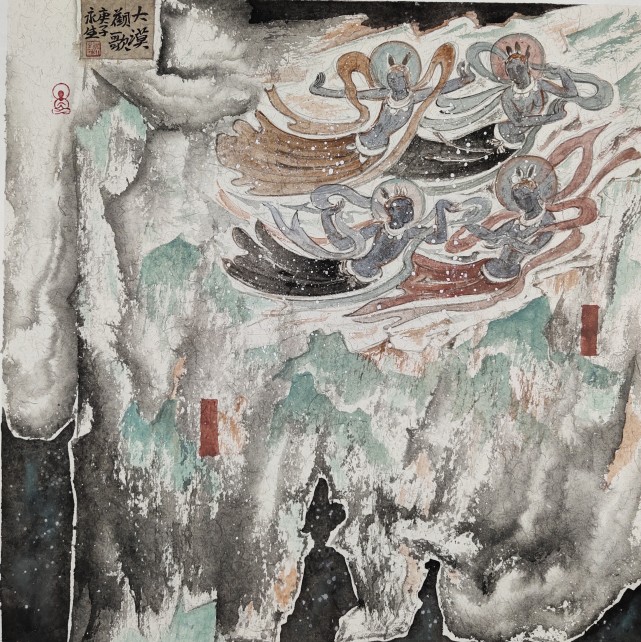 大漠
觀歌
庚子
永生